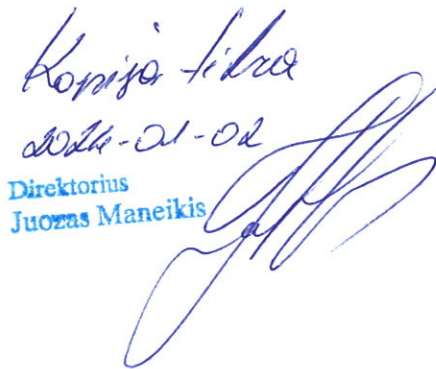 Kopija tikra
2024-01-02
Direktorius
Juozas Maneikis